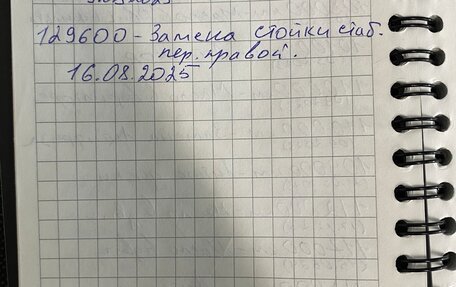 129600 - Замена стойки стаб.
пер. правой.
16.08.2025